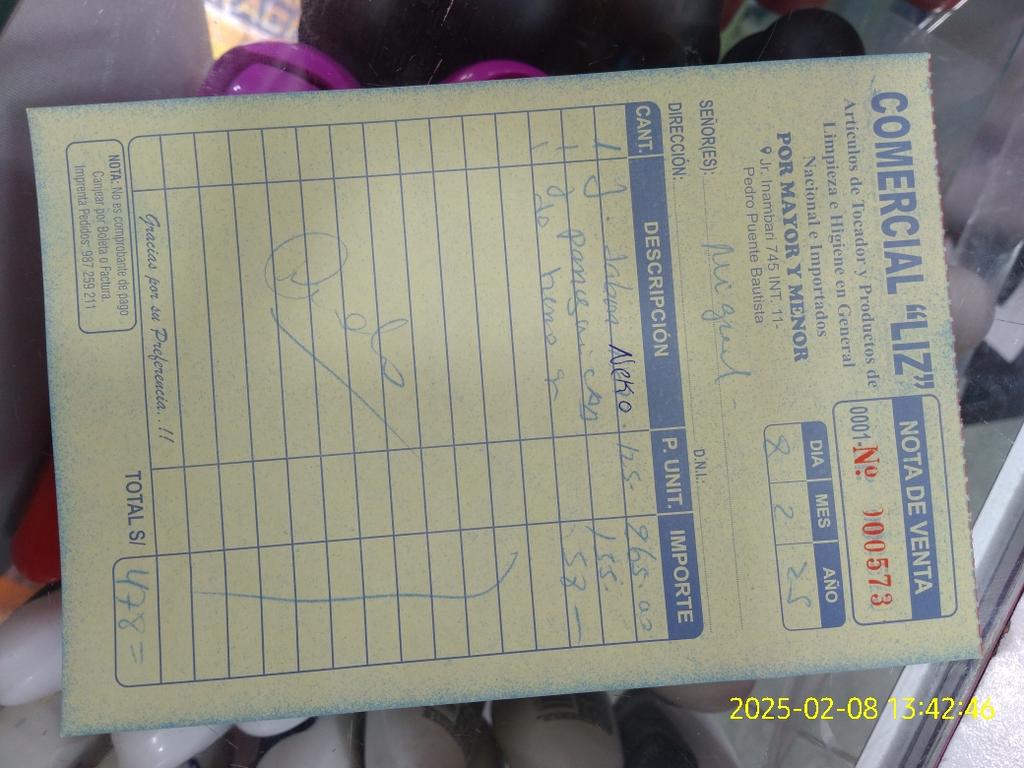 COMERCIAL "LIZ"
Artículos de Tocador y Productos de
Limpieza e Higiene en General
Nacional e Importados
POR MAYOR Y MENOR
Jr. Inambari 745 INT. 11-
Pedro Puente Bautista
NOTA DE VENTA
0001-Nº 000573
DIA MES AÑO
8 2 25
SEÑOR(ES): Miguel -
D.N.I.:
DIRECCIÓN:
CANT. DESCRIPCIÓN P. UNIT. IMPORTE
1 Neko 265.00
1 155.
1 58 —
Gracias por su Preferencia..!!
TOTAL S/ 478 =
NOTA: No es comprobante de pago
Canjear por Boleta o Factura.
Imprenta Pedidos: 987 259 211
2025-02-08 13:42:46